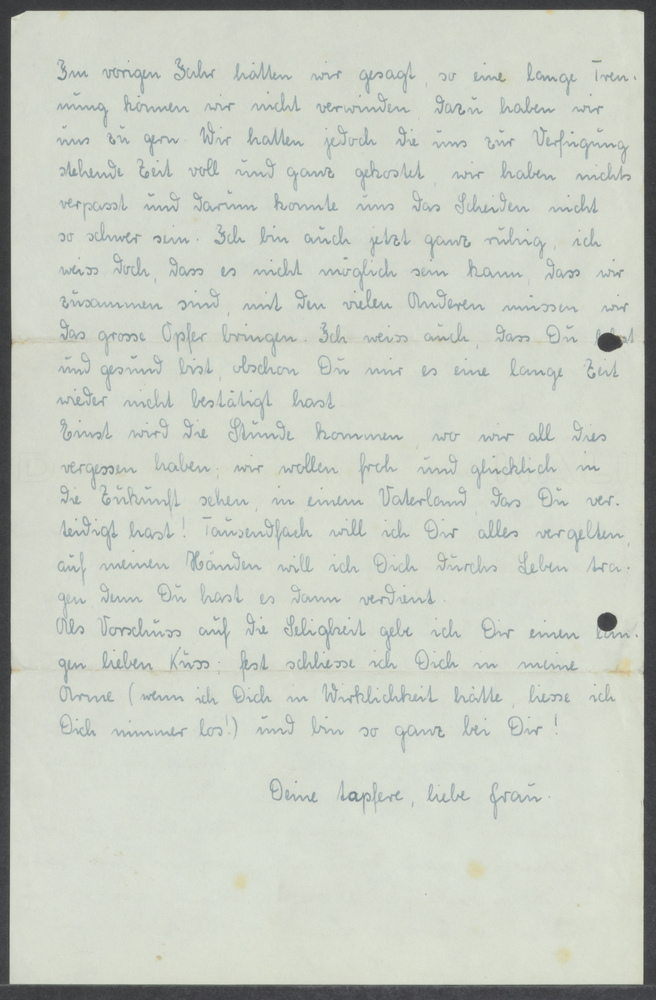 Im vorigen Jahr hätten wir gesagt, so eine lange Tren-
nung können wir nicht verwinden. Dazu haben wir
uns zu gern. Wir hatten jedoch die uns zur Verfügung
stehende Zeit voll und ganz gekostet, wir haben nichts
verpasst und darum konnte uns das Scheiden nicht
so schwer sein. Ich bin auch jetzt ganz ruhig, ich
weiss doch, dass es nicht möglich sein kann, dass wir
zusammen sind, mit den vielen Anderen müssen wir
das grosse Opfer bringen. Ich weiss auch, dass Du lebst
und gesund bist, obschon Du mir es eine lange Zeit
wieder nicht bestätigt hast.
Einst wird die Stunde kommen, wo wir all dies
vergessen haben; wir wollen froh und glücklich in
die Zukunft sehen, in einem Vaterland, das Du ver-
teidigt hast! Tausendfach will ich Dir alles vergelten,
auf meinen Händen will ich Dich durchs Leben tra-
gen denn Du hast es dann verdient.
Als Vorschuss auf die Seligkeit gebe ich Dir einen lan-
gen lieben Kuss; fest schliesse ich Dich in meine
Arme (wenn ich Dich in Wirklichkeit hätte, liesse ich
Dich nimmer los!) und bin so ganz bei Dir!
Deine tapfere, liebe Frau.